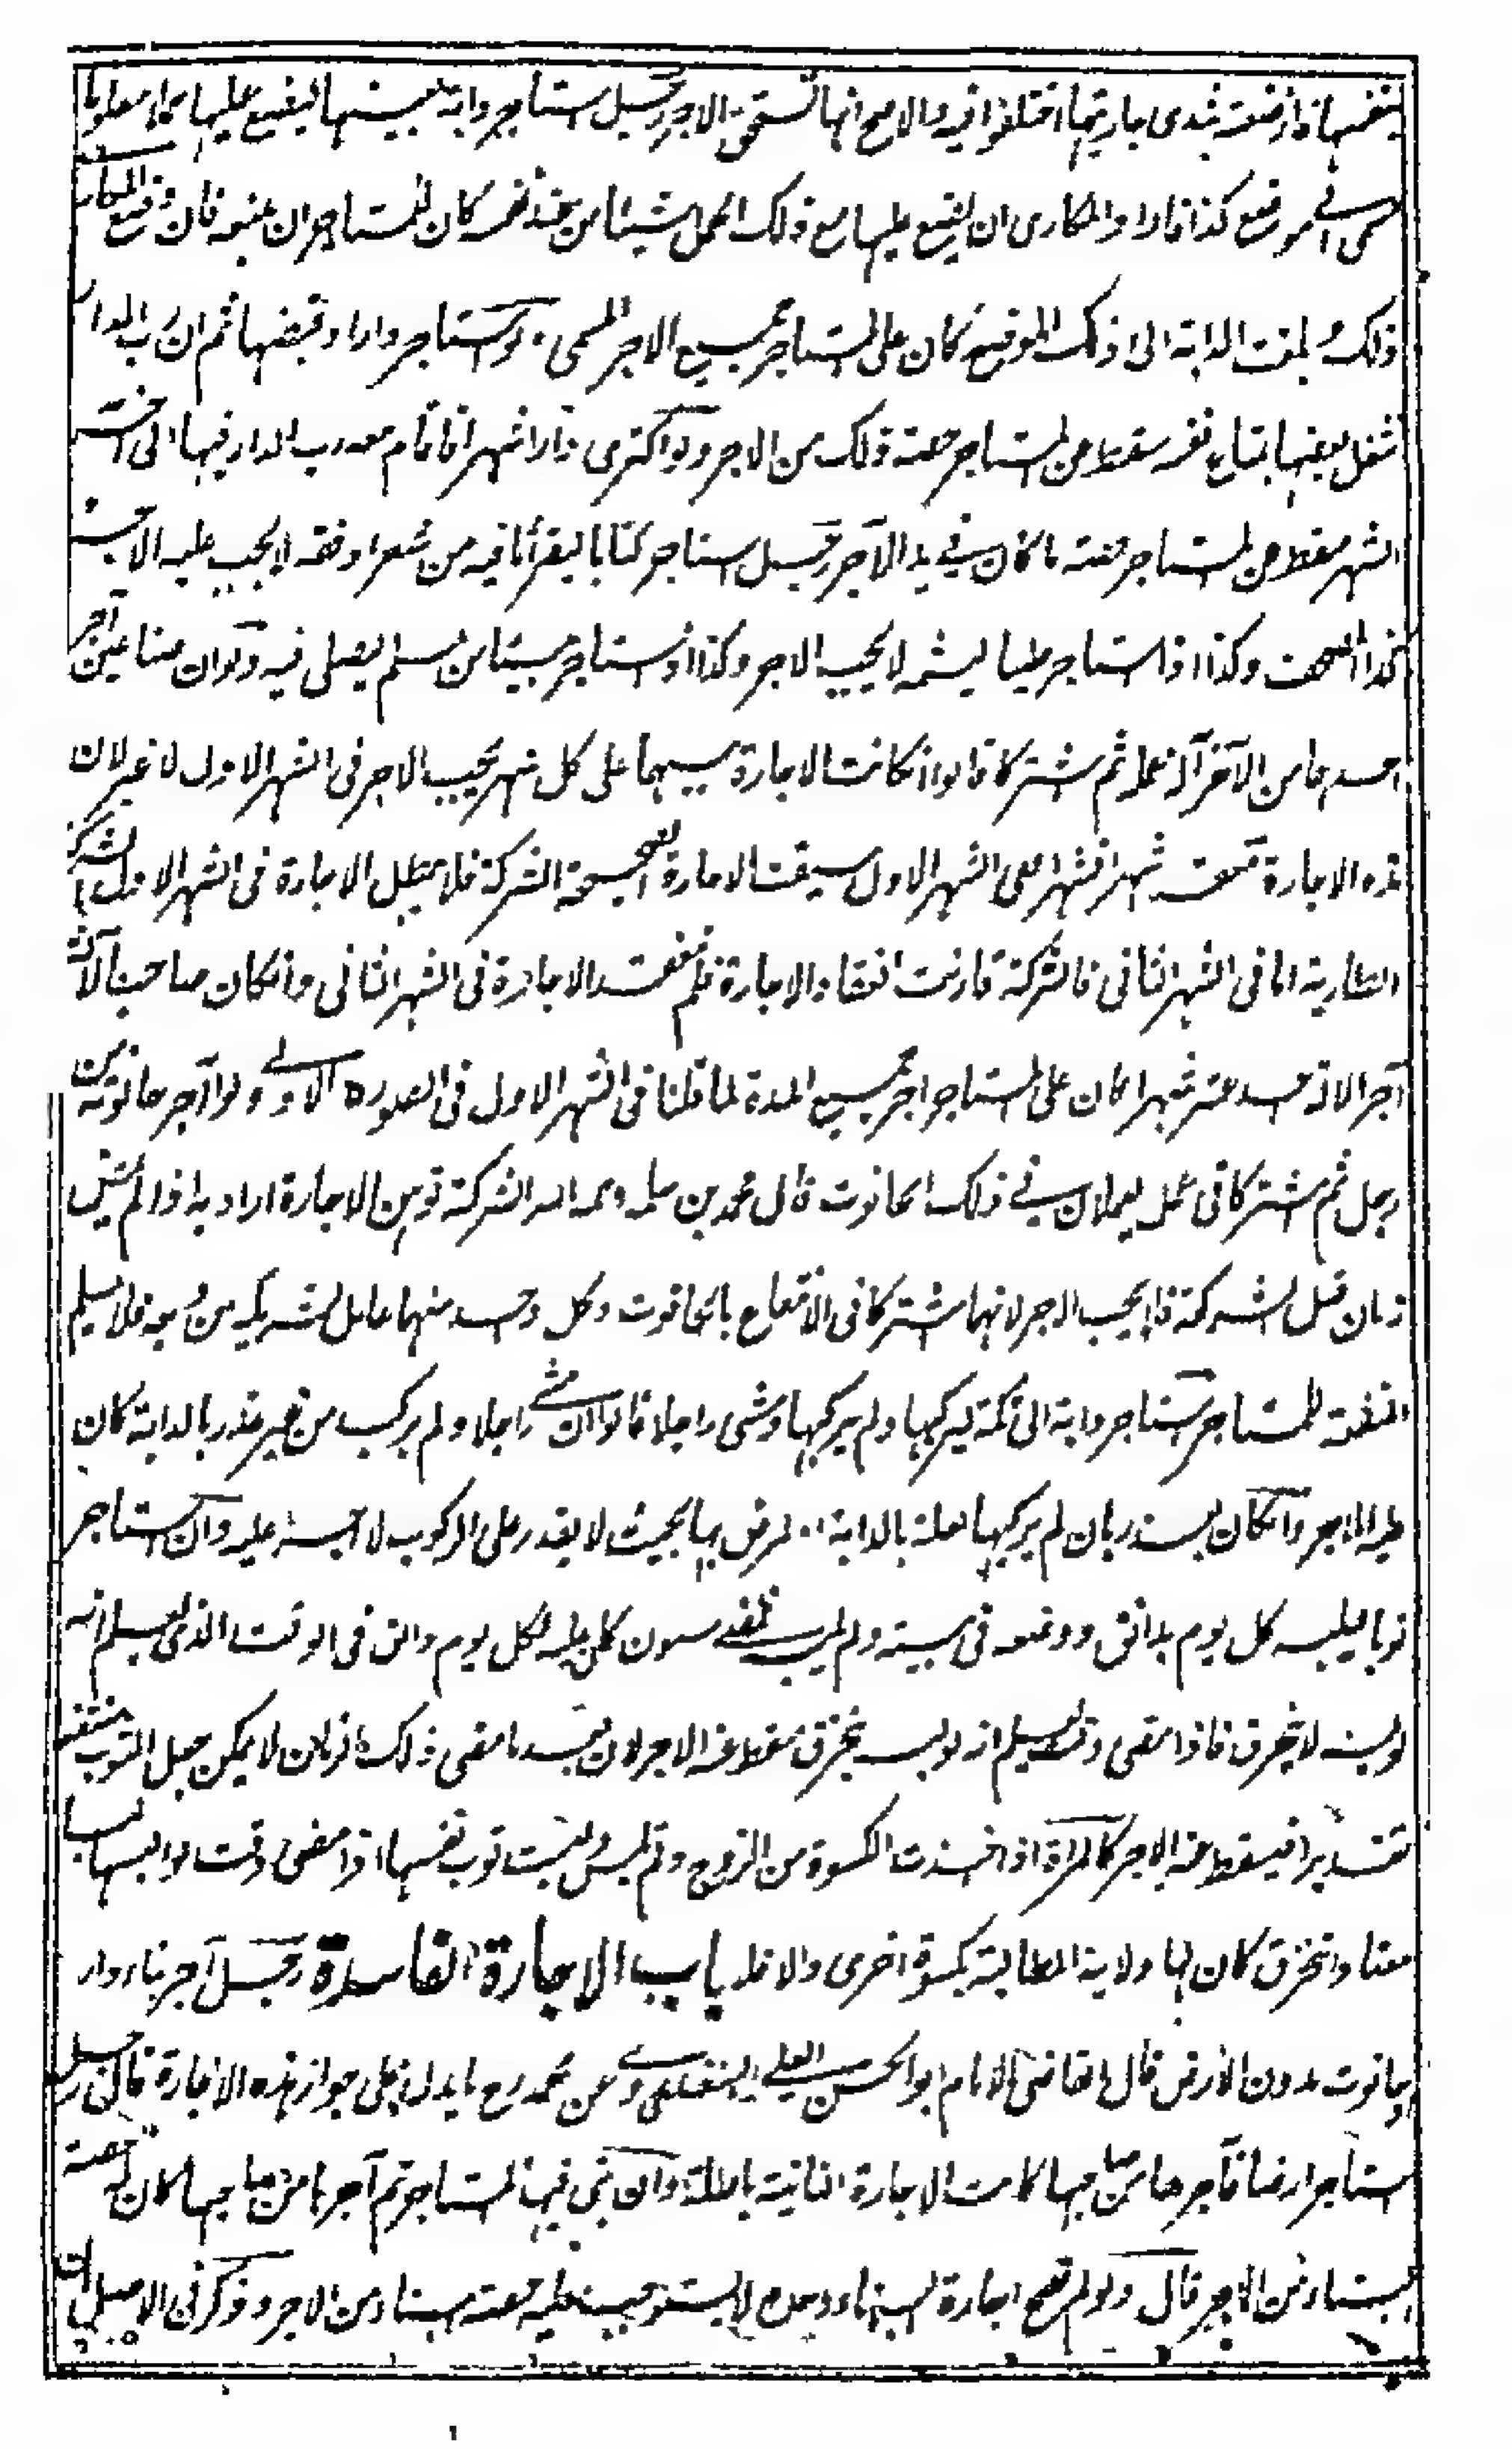 بنفسها فارضعته بثدى جاريتها اختلفوا فيه والاصح انها تستحق الاجر رجل استاجر دابة بعينها ليضع عليها حملا معلوما
الى موضع كذا فاراد المكارى ان يضع عليها مع ذلك الحمل شيئا من عند نفسه كان للمستاجر ان يمنعه فان وضع المكارى
ذلك وبلغت الدابة الى ذلك الموضع كان على المستاجر جميع الاجر المسمى ولو استاجر دارا وقبضها ثم ان رب الدار
شغل بعضها بمتاع نفسه سقط عن المستاجر حصة ذلك من الاجر ولو اكترى دارا شهرا فاقام معه رب الدار فيها الى اخر
الشهر سقط عن المستاجر حصة ما كان في يد الآجر رجل استاجر كتابا ليقرأ ما فيه من شعر او فقه لا يجب عليه الاجر
وكذا المصحف وكذا اذا استاجر طيبا ليشمه لا يجب الاجر وكذا لو استاجر بيتا من مسلم يصلى فيه ولو ان صناعين آجر
احدهما من الآخر آلة عمله ثم اشتركا قالوا ان كانت الاجارة بينهما على كل شهر يجب الاجر فى الشهر الاول لا غير لان
هذه الاجارة تنعقد شهرا فشهرا ففى الشهر الاول سبقت الاجارة الصحيحة الشركة فلا تبطل الاجارة فى الشهر الاول بالشركة
الطارية اما فى الشهر الثانى فالشركة قارنت انعقاد الاجارة فلم تنعقد الاجارة فى الشهر الثانى وان كان صاحب الآلة
آجر الآلة عشر شهرا كان على المستاجر اجر جميع المدة لما قلنا فى الشهر الاول فى الصورة الاولى ولو آجر حانوته من
رجل ثم اشتركا فى عمل يعملان في ذلك الحانوت قال محمد بن سلمه رحمه الله الشركة توهن الاجارة اراد به اذا لم يمض
زمان قبل الشركة فانه يجب الاجر لانهما اشتركا فى الانتفاع بالحانوت وكل واحد منهما عامل لشريكه من وجه فلا يسلم
المنفعة للمستاجر استاجر دابة الى مكة ليركبها ولم يركبها ومشى راجلا قالوا ان مشى راجلا ولم يركب من غير عذر بالدابة كان
عليه الاجر وان كان بعذر بان لم يركبها لعلة بالدابة لمرض بها بحيث لا يقدر على الركوب لا اجر عليه وان استاجر
ثوبا ليلبسه كل يوم بدانق ووضعه فى بيته ولم يلبس حتى مضى سنون كان عليه لكل يوم دانق فى الوقت الذى يعلم انه
لو لبسه لا يتخرق فاذا مضى وقت يعلم انه لو لبس يتخرق سقط عنه الاجر لان بعد ما مضى ذلك الزمان لا يمكن جعل الثوب منتفعا
تقديرا فيسقط عنه الاجر كالمرأة اذا اخذت الكسوة من الزوج ولم تلبس ولبست ثوب نفسها اذا مضى وقت لو لبستها لبسا
معتادا تتخرق كان لها ولاية المطالبة بكسوة اخرى والا فلا باب الاجارة الفاسدة رجل آجر بناء دار
او حانوت بدون الارض قال القاضى الامام ابو الحسن على السغدى روى عن محمد رح ما يدل على جواز هذه الاجارة فانه قال رجل
استاجر ارضا فآجرها من صاحبها كانت الاجارة الثانية باطلة وان بنى فيها المستاجر ثم آجرها من صاحبها كان له حصة
البناء من الاجر قال ولو لم تصح اجارة البناء وحده لا يستوجب عليه حصة البناء من الاجر وذكر فى الاصل ان